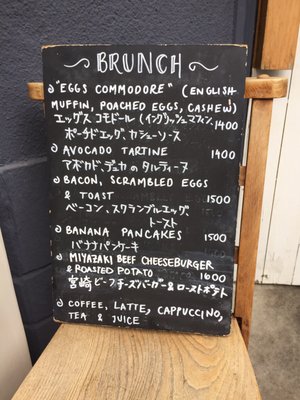 BRUNCH
"EGGS COMMODORE" (ENGLISH
MUFFIN, POACHED EGGS, CASHEW)
エッグス コモドール (イングリッシュマフィン,
ポーチドエッグ、カシューソース 1400
AVOCADO TARTINE 1400
アボカド、デュカのタルティーヌ
BACON, SCRAMBLED EGGS
& TOAST 1500
ベーコン、スクランブルエッグ、
トースト
BANANA PANCAKES 1500
バナナパンケーキ
MIYAZAKI BEEF CHEESEBURGER
& ROASTED POTATO 1600
宮崎ビーフチーズバーガー&ローストポテト
COFFEE, LATTE, CAPPUCCINO,
TEA & JUICE